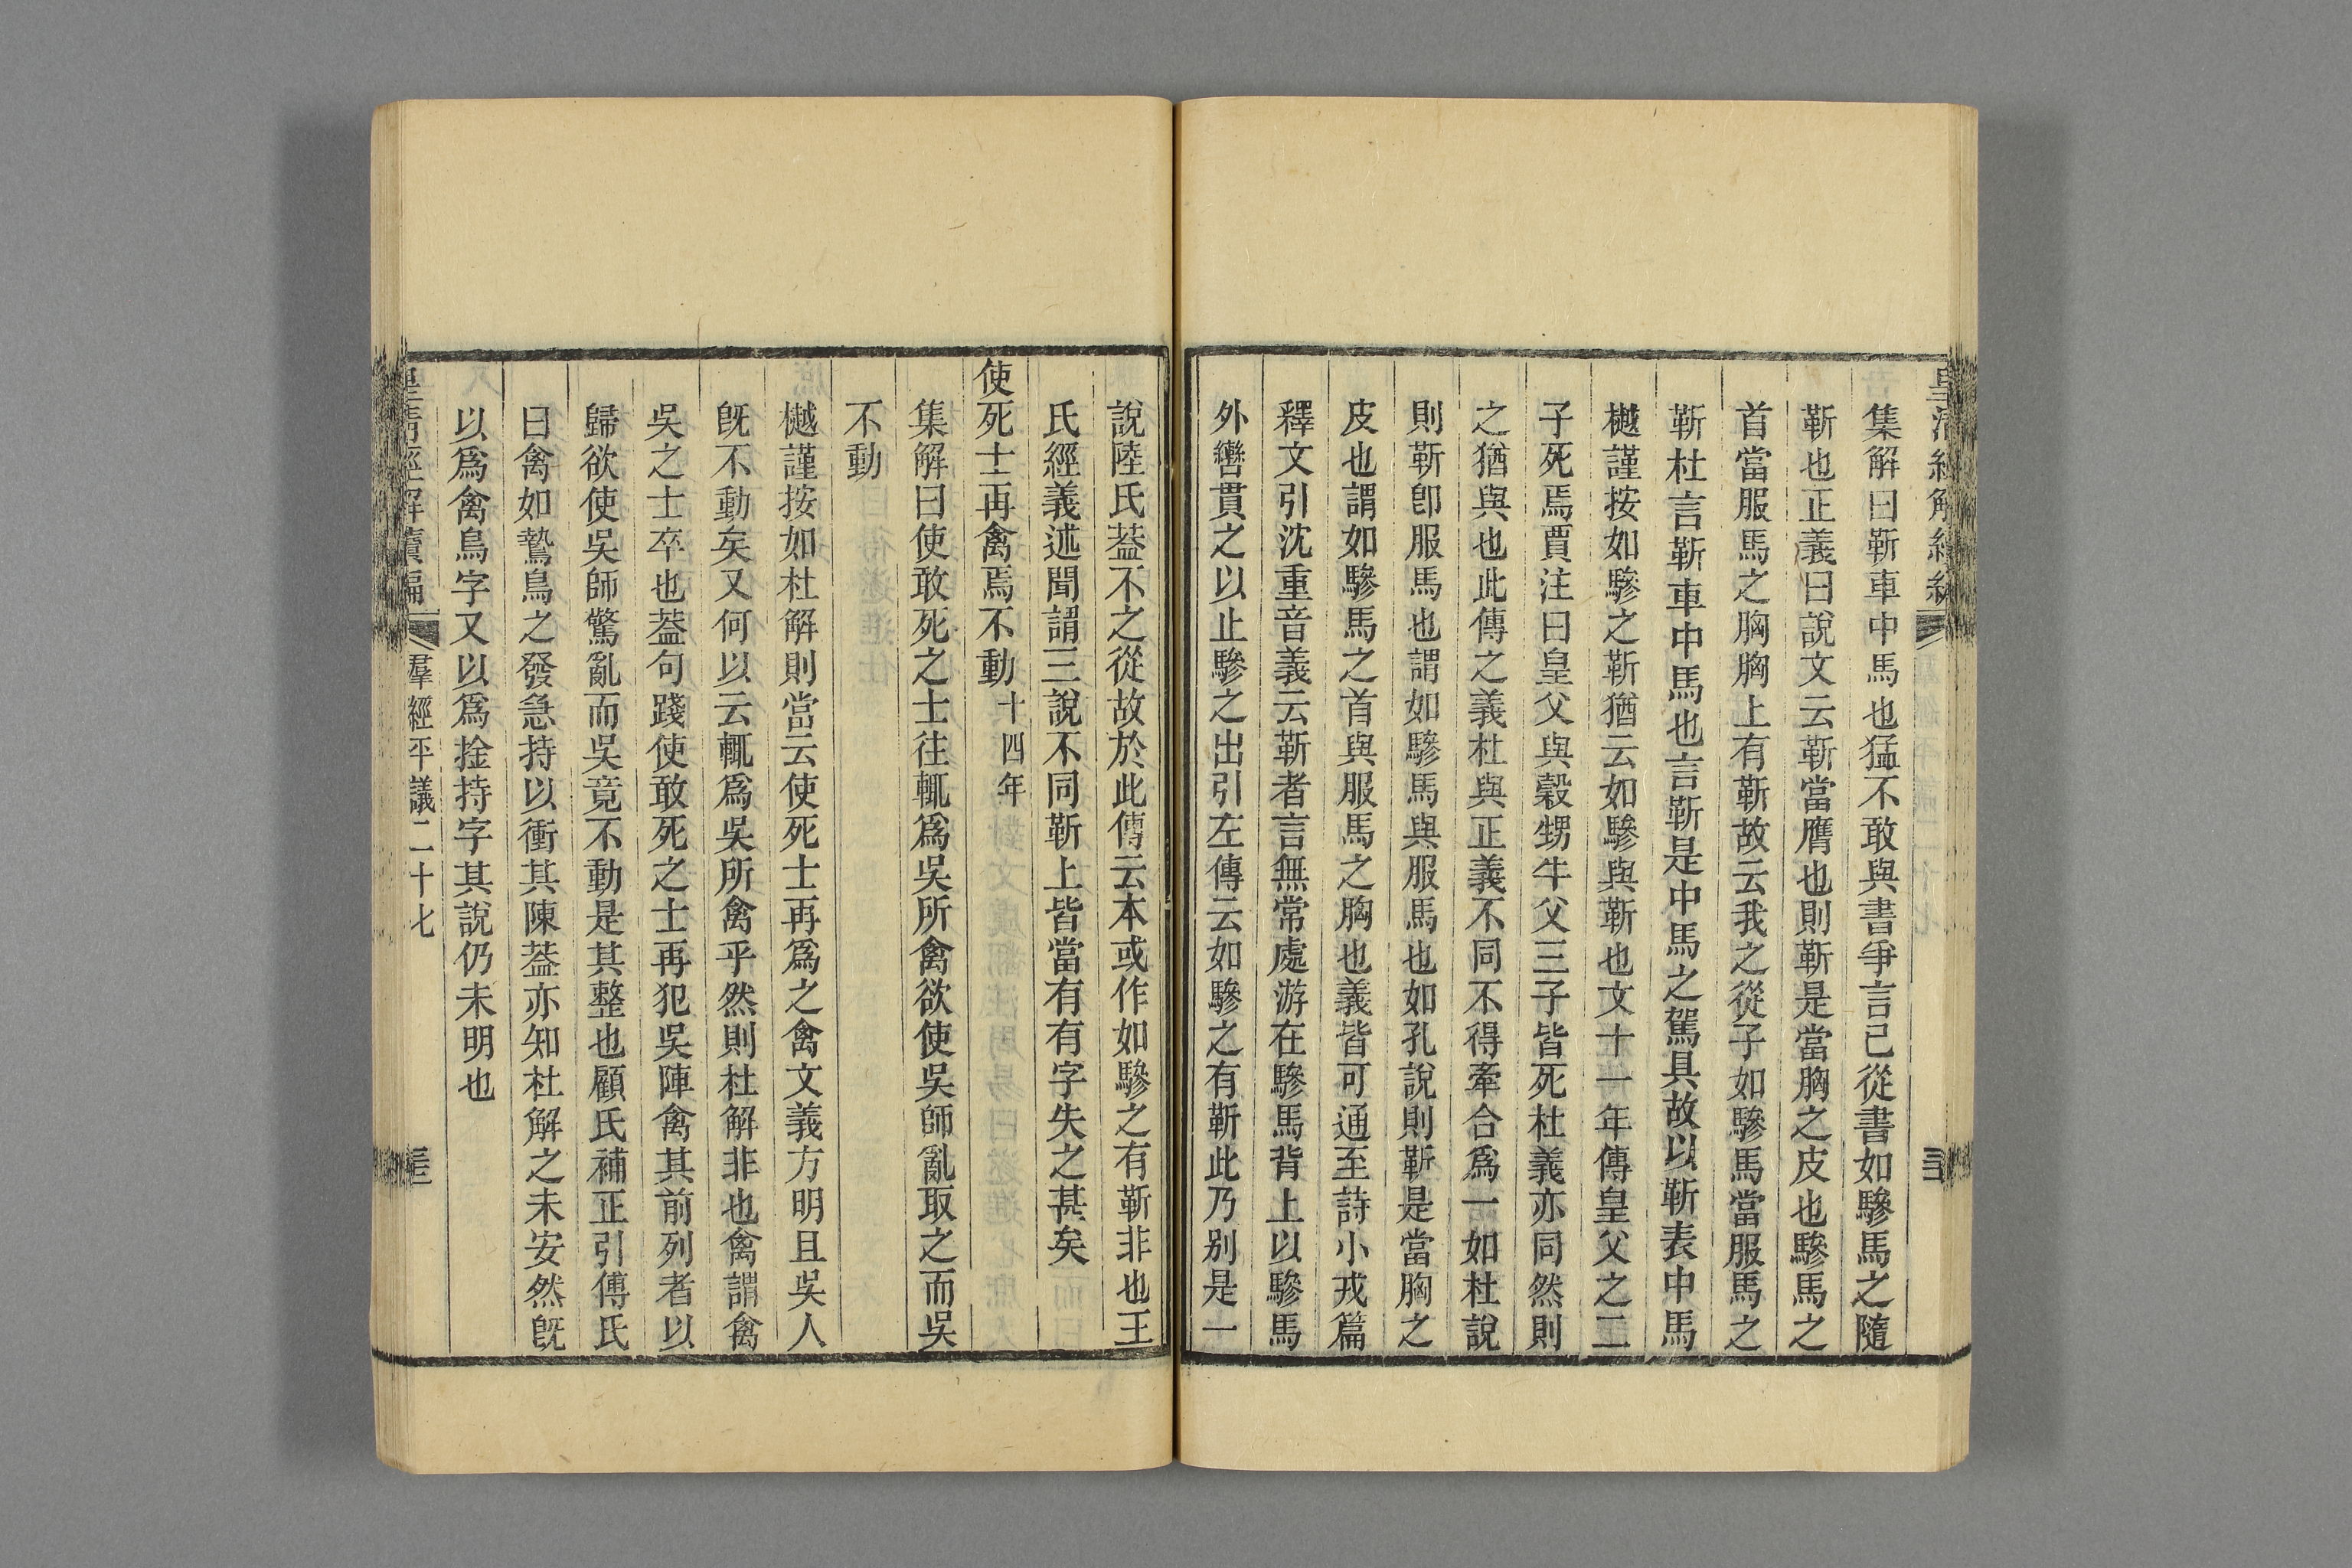 集解曰靳車中馬也猛不敢與書爭言己從書如驂馬之隨
靳也正義曰說文云靳當膺也則靳是當胸之皮也驂馬之
首當服馬之胸胸上有靳故云我之從子如驂馬當服馬之
靳杜言靳車中馬也言靳是中馬之駕具故以靳表中馬
樾謹按如驂之靳猶云如驂與靳也文十一年傳皇父之二
子死焉賈注曰皇父與穀甥牛父三子皆死杜義亦同然則
之猶與也此傳之義杜與正義不同不得牽合爲一如杜說
則靳卽服馬也謂如驂馬與服馬也如孔說則靳是當胸之
皮也謂如驂馬之首與服馬之胸也義皆可通至詩小戎篇
釋文引沈重音義云靳者言無常處游在驂馬背上以驂馬
外轡貫之以止驂之出引左傳云如驂之有靳此乃别是一
說陸氏葢不之從故於此傳云本或作如驂之有靳非也王
氏經義述聞謂三說不同靳上皆當有有字失之甚矣
使死士再禽焉不動十四年
集解曰使敢死之士往輒爲吳所禽欲使吳師亂取之而吳
不動
樾謹按如杜解則當云使死士再爲之禽文義方明且吳人
旣不動矣又何以云輒爲吳所禽乎然則杜解非也禽謂禽
吳之士卒也葢句踐使敢死之士再犯吳陣禽其前列者以
歸欲使吳師驚亂而吳竟不動是其整也顧氏補正引傅氏
曰禽如鷙鳥之發急持以衝其陳葢亦知杜解之未安然旣
以爲禽鳥字又以爲捦持字其說仍未明也
皇清經解續編 羣經平議二十七